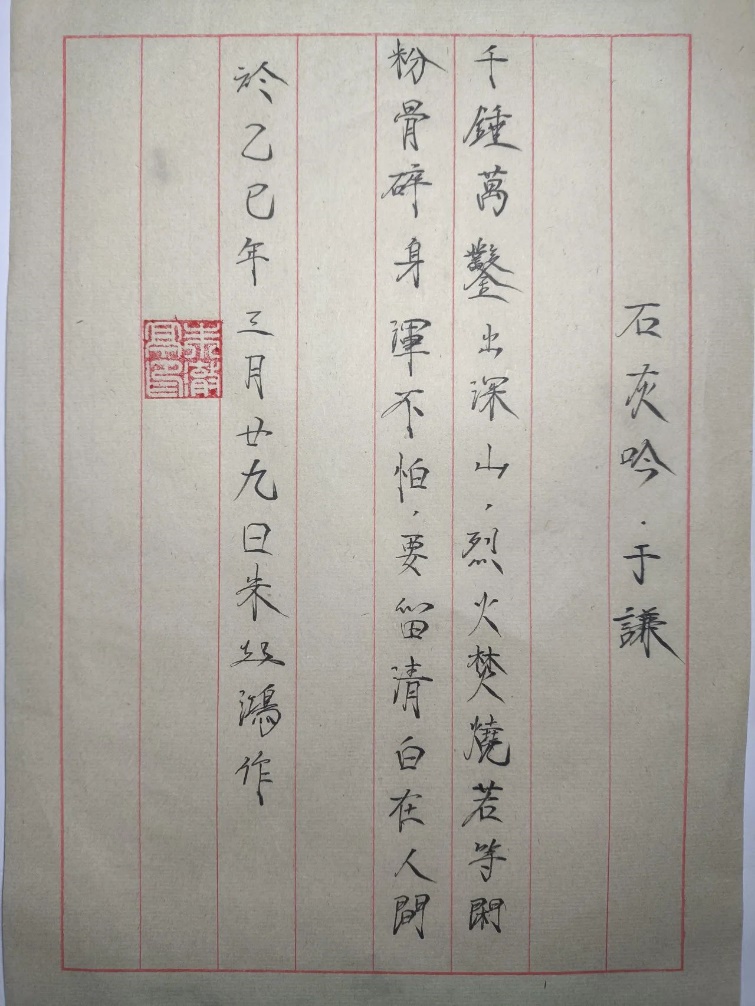 石灰吟·于謙
千錘萬鑿出深山，烈火焚燒若等閑
粉骨碎身渾不怕，要留清白在人間
於乙巳年三月廿九日朱 鴻作